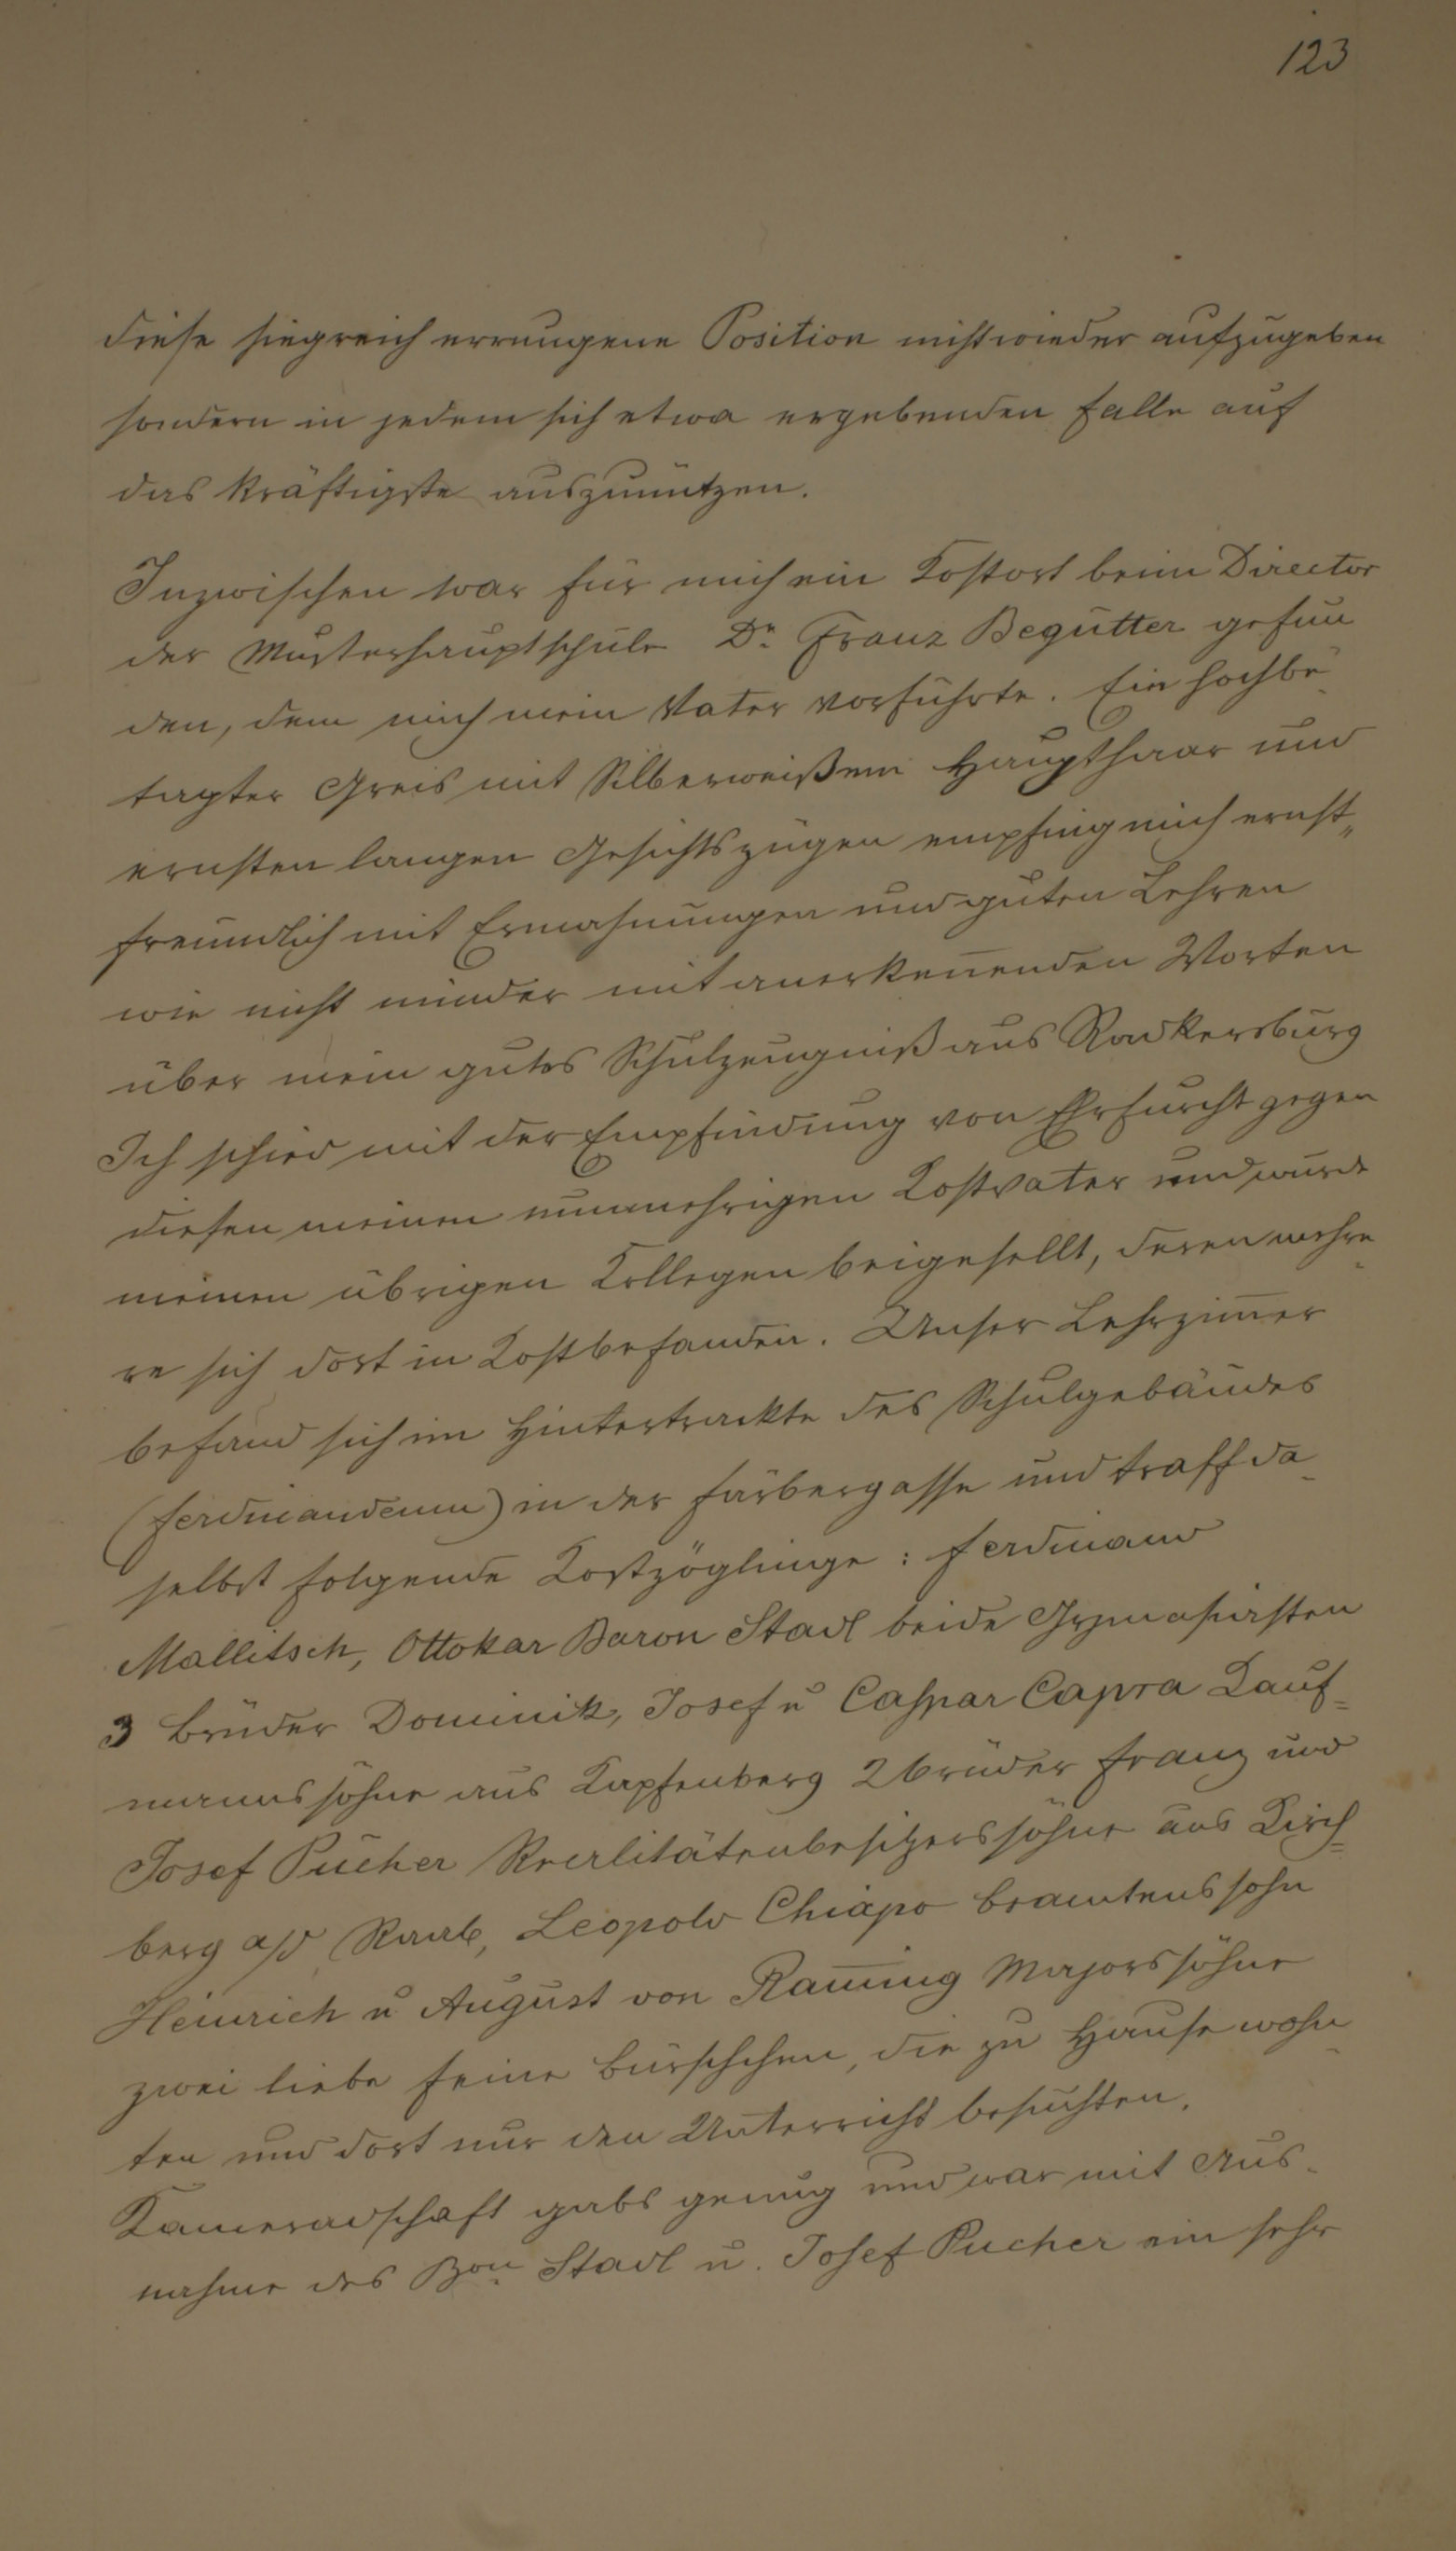 123
diese siegreich errungene Position nicht wieder aufzugeben
sondern in jedem sich etwa ergebenden Falle auf
das kräftigste auszunützen.
Inzwischen war für mich ein Kostort beim Director
der Musterhauptschule Dr. Franz Begutter gefun
den, dem mich mein Vater vorführte. Ein hochbe-
tagter Greis mit Silberweißem Haupthaar und
ernsten langen Gesichtszügen empfing mich ernst„
freundlich mit Ermahnungen und guten Lehren
wie nicht minder mit anerkeñenden Worten
über mein gutes Schulzeugniß aus Radkersburg
Ich schied mit der Empfindung von Ehrfurcht gegen
diesen meinen nunmehrigen Kostvater und wurde
meinen übrigen Kollegen beigesellt, deren mehre-
re sich dort in Kost befanden. Unser Lehrzim̅er
befand sich im Hintertrackte des Schulgebäudes
(Ferdinandeum) in der Färbergasse und traff da-
selbst folgende Kostzöglinge: Ferdinand
Mallitsch, Ottokar Baron Stadl beide Gymnasiasten
3 Brüder Dominik, Josef u Caspar Capra Kauf=
mannssöhne aus Kapfenberg 2 brüder Franz und
Josef Pucher Realitätenbesitzerssöhne aus Kirch=
berg a/d Raab, Leopold Chiapo Beamtenssohn
Heinrich u August von Ram̅ing Majorssöhne
zwei liebe feine Bürschchen, die zu Hause wohn-
ten und dort nur den Unterricht besuchten.
Kameradschaft gabs genug und war mit Aus-
nahme des Bon Stadl u. Josef Pucher ein sehr